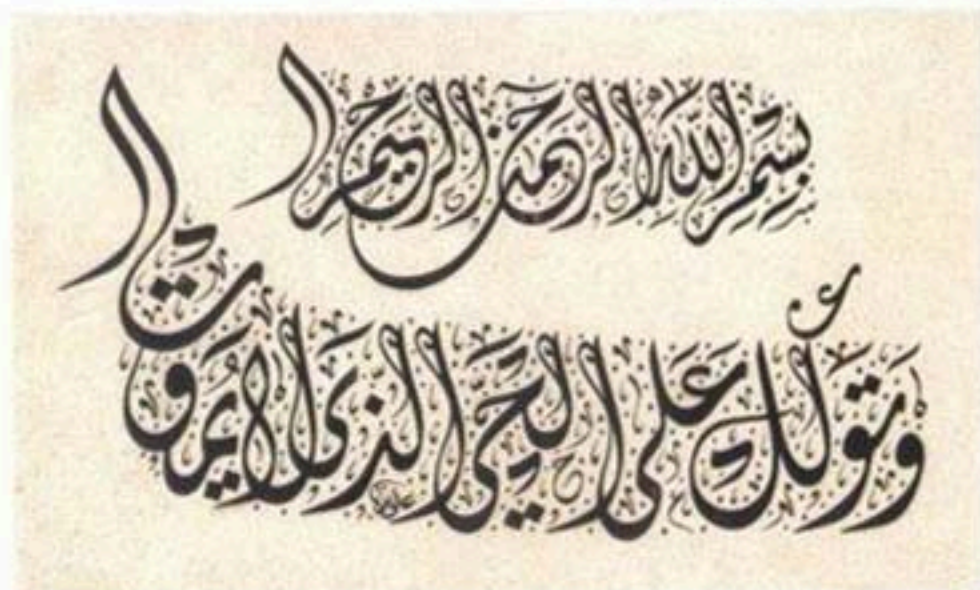 بِسْمِ اللَّهِ الرَّحْمَنِ الرَّحِيمِ
وَتَوَكَّلْ عَلَى الْحَيِّ الَّذِي لَا يَمُوتُ